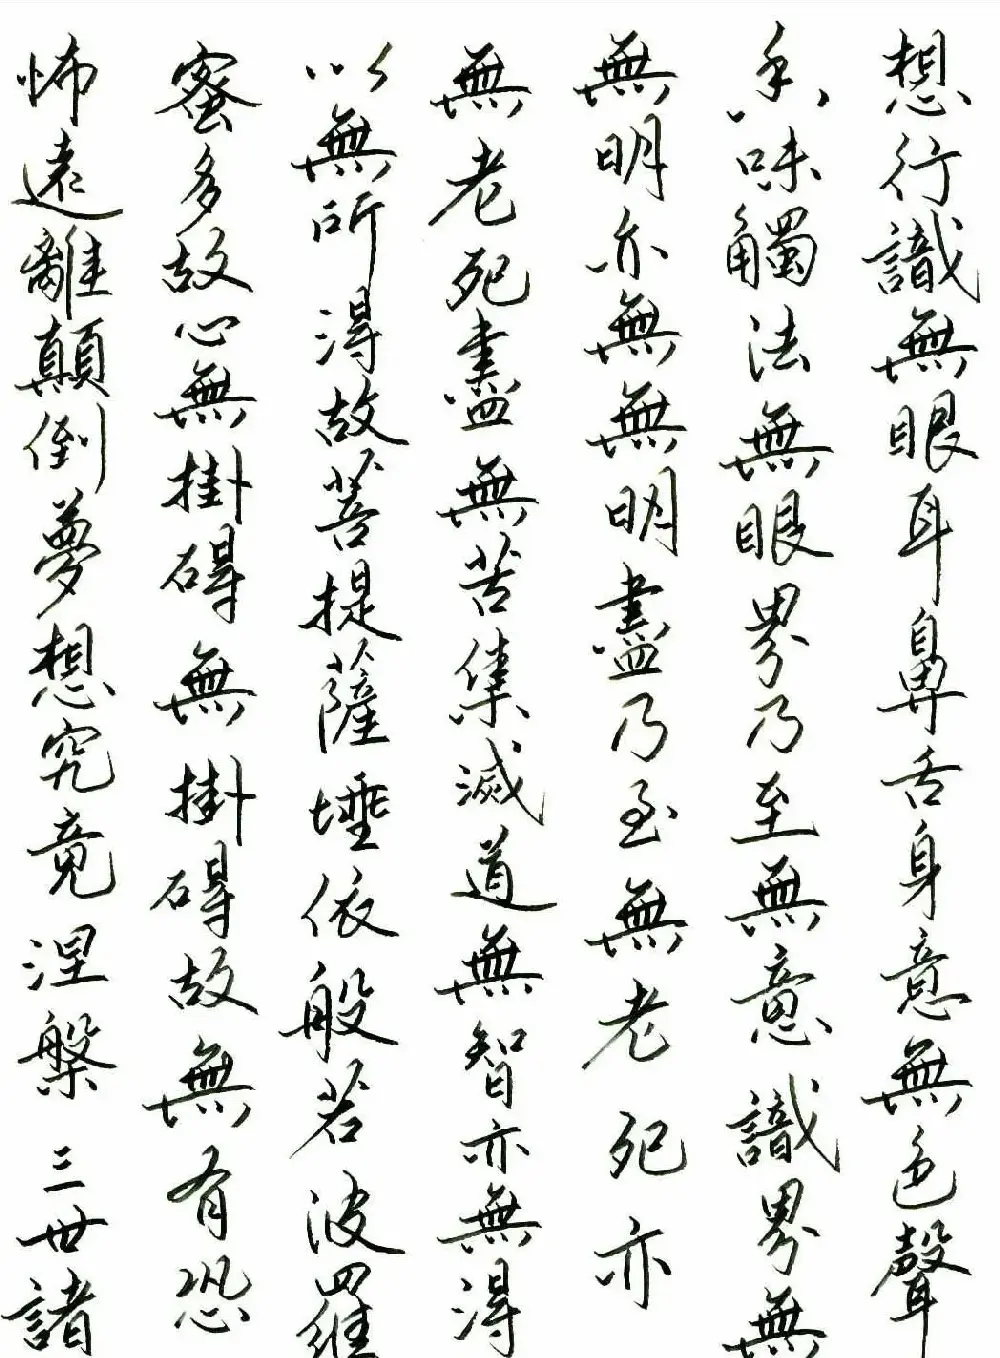 想行識無眼耳鼻舌身意無色聲
香味觸法無眼界乃至無意識界無
無明亦無無明盡乃至無老死亦
無老死盡無苦集滅道無智亦無得
以無所得故菩提薩埵依般若波羅
蜜多故心無掛碍無掛碍故無有恐
怖遠離顛倒夢想究竟涅槃三世諸